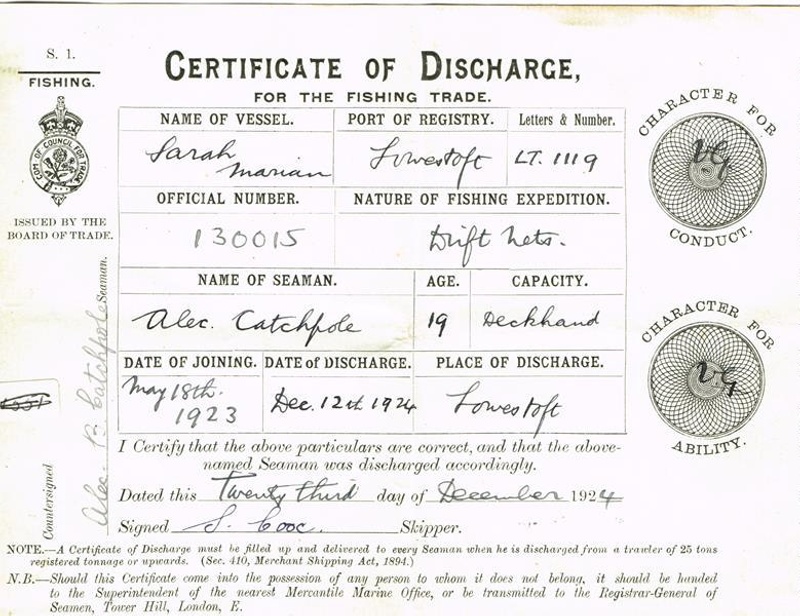 S. 1.
FISHING.
COM. OF COUNCIL FOR TRADE
ISSUED BY THE
BOARD OF TRADE.
CERTIFICATE OF DISCHARGE,
FOR THE FISHING TRADE.
NAME OF VESSEL. PORT OF REGISTRY. Letters & Number.
Sarah Marian Lowestoft LT. 1119
OFFICIAL NUMBER. NATURE OF FISHING EXPEDITION.
130015 Drift Nets.
NAME OF SEAMAN. AGE. CAPACITY.
Alec. Catchpole 19 Deckhand
DATE OF JOINING. DATE of DISCHARGE. PLACE OF DISCHARGE.
May 18th. 1923 Dec. 12th 1924 Lowestoft
CHARACTER FOR
V.G
CONDUCT.
CHARACTER FOR
V.G
ABILITY.
I Certify that the above particulars are correct, and that the above-
named Seaman was discharged accordingly.
Dated this Twenty third day of December 1924
Signed S. Cooc. Skipper.
Countersigned Alec. B. Catchpole Seaman.
NOTE.—A Certificate of Discharge must be filled up and delivered to every Seaman when he is discharged from a trawler of 25 tons
registered tonnage or upwards. (Sec. 410, Merchant Shipping Act, 1894.)
N.B.—Should this Certificate come into the possession of any person to whom it does not belong, it should be handed
to the Superintendent of the nearest Mercantile Marine Office, or be transmitted to the Registrar-General of
Seamen, Tower Hill, London, E.